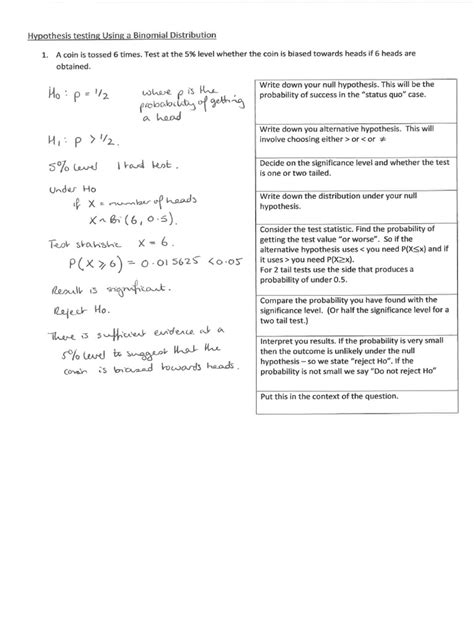 Hypothesis testing Using a Binomial Distribution
1. A coin is tossed 6 times. Test at the 5% level whether the coin is biased towards heads if 6 heads are
obtained.
H₀ : p = 1/2 where p is the
probability of getting
a head
H₁ : p > 1/2.
5% level 1 tard test.
Under H₀
if X = number of heads
X ~ Bi (6, 0.5).
Test statistic X = 6.
P(X ⩾ 6) = 0.015625 < 0.05
Result is significant.
Reject H₀.
There is sufficient evidence at a
5% level to suggest that the
coin is biased towards heads.
Write down your null hypothesis. This will be the
probability of success in the "status quo" case.
Write down you alternative hypothesis. This will
involve choosing either > or < or ≠
Decide on the significance level and whether the test
is one or two tailed.
Write down the distribution under your null
hypothesis.
Consider the test statistic. Find the probability of
getting the test value "or worse". So if the
alternative hypothesis uses < you need P(X≤x) and if
it uses > you need P(X≥x).
For 2 tail tests use the side that produces a
probability of under 0.5.
Compare the probability you have found with the
significance level. (Or half the significance level for a
two tail test.)
Interpret you results. If the probability is very small
then the outcome is unlikely under the null
hypothesis – so we state "reject Ho". If the
probability is not small we say "Do not reject Ho"
Put this in the context of the question.